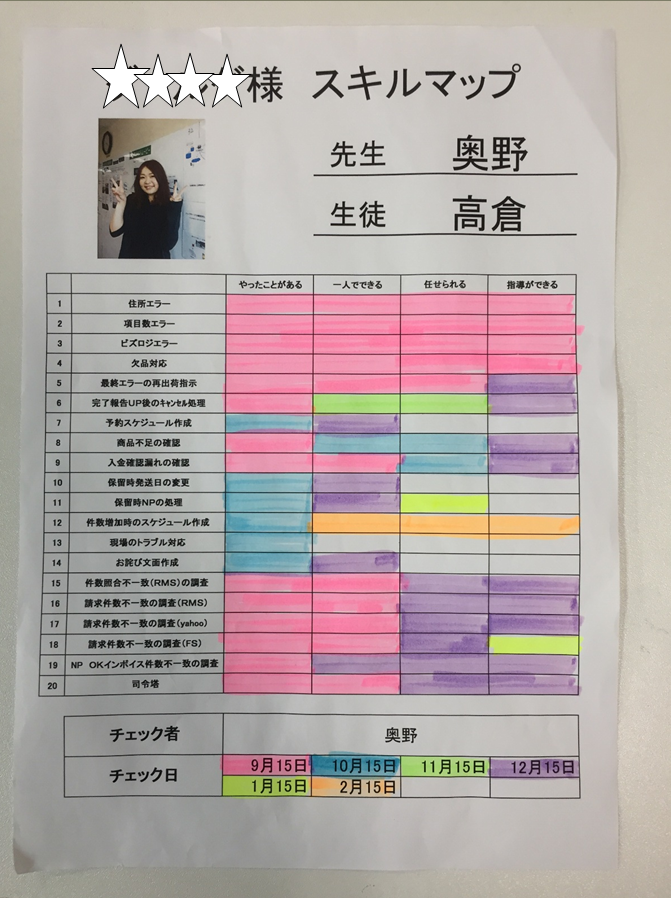 様 スキルマップ
先生 奥野
生徒 高倉
やったことがある 一人でできる 任せられる 指導ができる
1 住所エラー
2 項目数エラー
3 ビズロジエラー
4 欠品対応
5 最終エラーの再出荷指示
6 完了報告UP後のｷｬﾝｾﾙ処理
7 予約スケジュール作成
8 商品不足の確認
9 入金確認漏れの確認
10 保留時発送日の変更
11 保留時NPの処理
12 件数増加時のスケジュール作成
13 現場のトラブル対応
14 お詫び文面作成
15 件数照合不一致(RMS)の調査
16 請求件数不一致の調査(RMS)
17 請求件数不一致の調査(yahoo)
18 請求件数不一致の調査(FS)
19 NP OKインボイス件数不一致の調査
20 司令塔
チェック者 奥野
チェック日 9月15日 10月15日 11月15日 12月15日
1月15日 2月15日